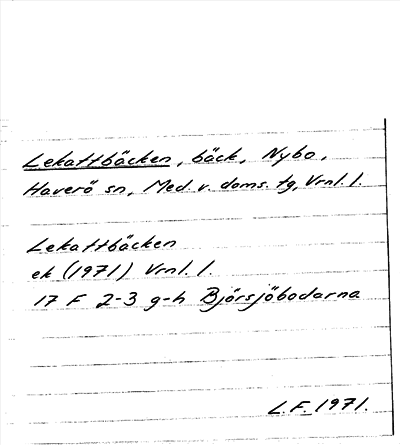 Lekattbäcken, bäck, Nybo,
Haverö sn, Med. v. doms. tg, Vrnl. l.
Lekattbäcken
ek (1971) Vrnl. l.
17 F 2-3 g-h Björsjöbodarna
L.F. 1971.